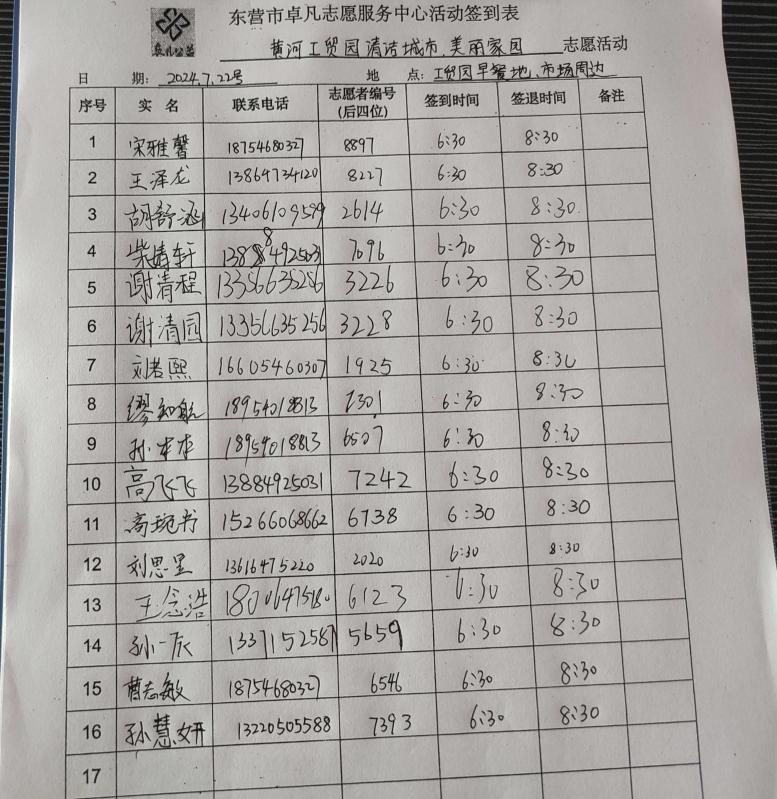 东营市卓凡志愿服务中心活动签到表
卓凡公益
黄河工贸园清洁城市、美丽家园 志愿活动
日 期: 2024.7.22号 地 点: 工贸园早餐地、市场周边
序号 实 名 联系电话 志愿者编号(后四位) 签到时间 签退时间 备注
1 宋雅馨 18754680327 8897 6:30 8:30
2 王泽龙 13864734120 8227 6:30 8:30
3 胡舒涵 13406109599 2614 6:30 8:30
4 柴婧轩 7096 6:30 8:30
5 谢清程 13356635256 3226 6:30 8:30
6 谢清园 13356635256 3228 6:30 8:30
7 刘若熙 16605460307 1925 6:30 8:30
8 缪知航 18954018813 2301 6:30 8:30
9 孙本本 18954018813 6507 6:30 8:30
10 高飞飞 13884925031 7242 6:30 8:30
11 高琬书 15266068662 6738 6:30 8:30
12 刘思呈 13616475220 2020 6:30 8:30
13 王念浩 18006475180 6123 6:30 8:30
14 孙一辰 13371152587 5659 6:30 8:30
15 曹志敏 18754680327 6546 6:30 8:30
16 孙慧妍 13220505588 7393 6:30 8:30
17